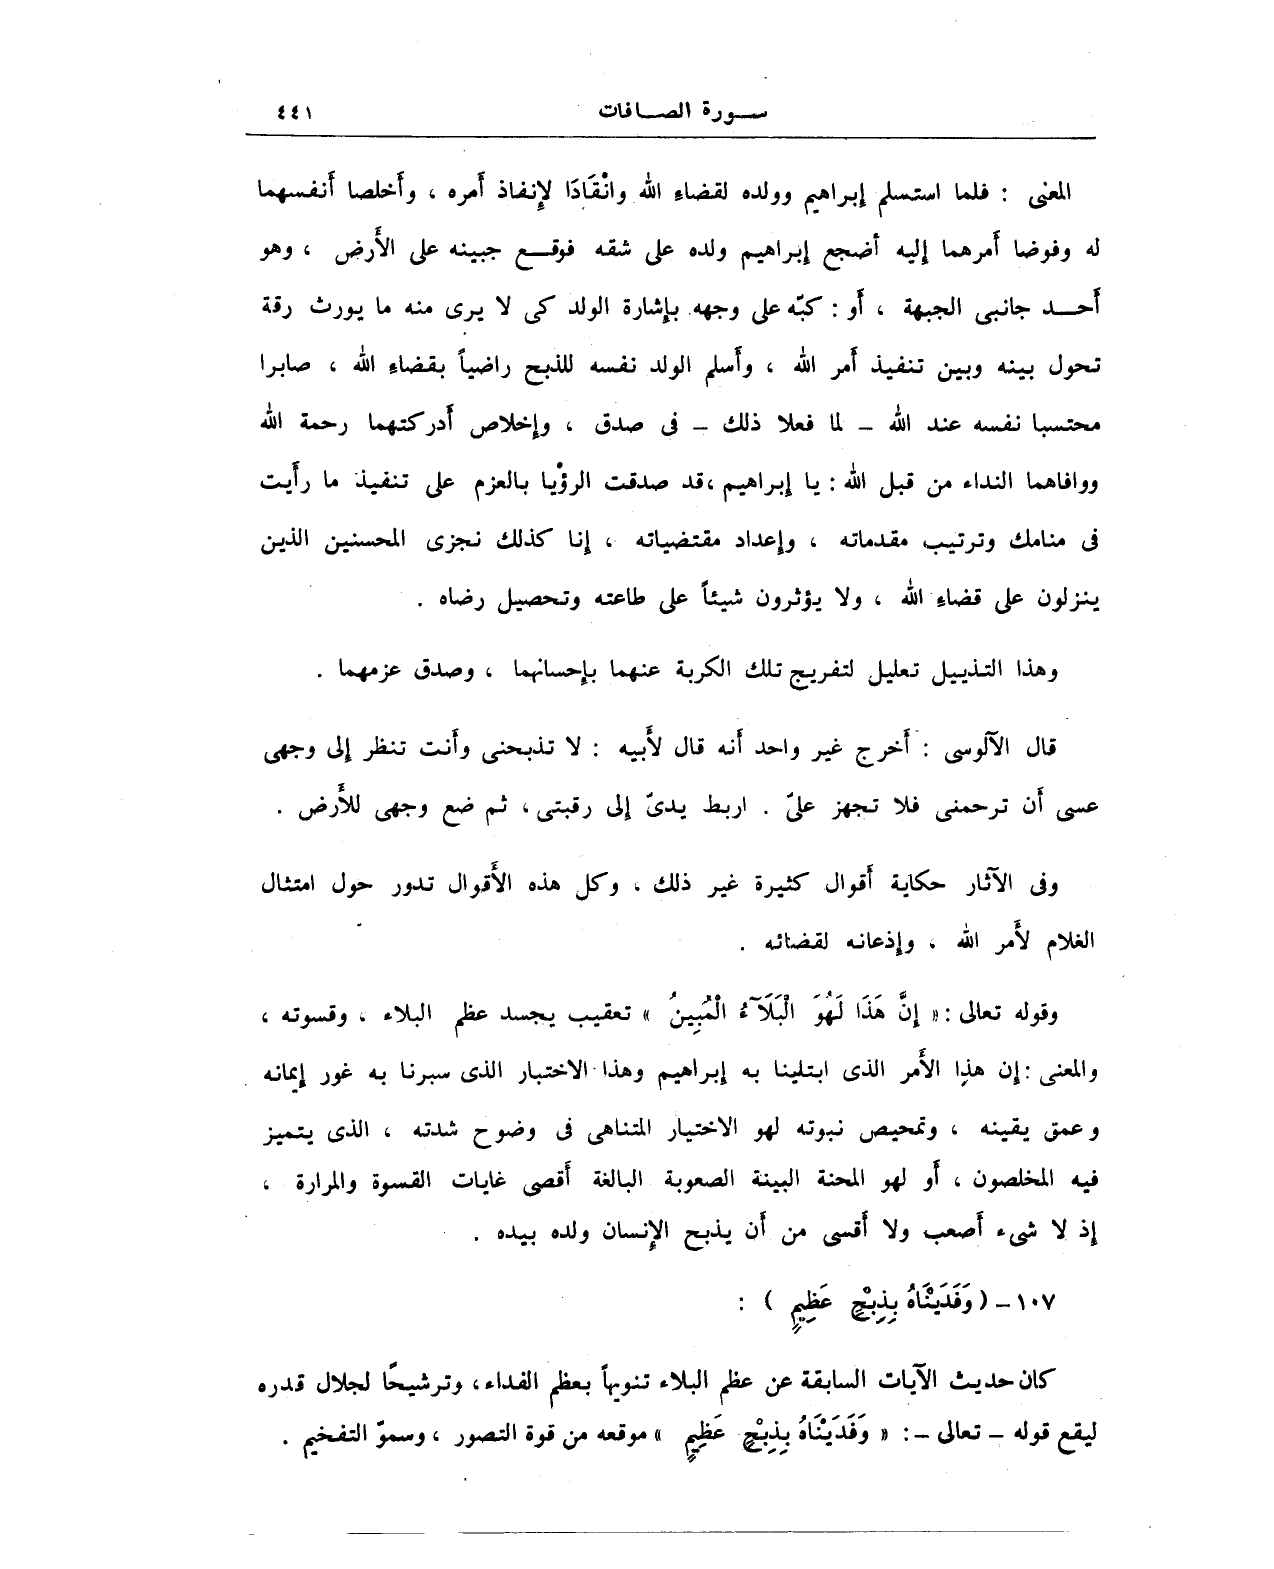 سورة الصافات ٤٤١
المعنى : فلما استسلم إبراهيم وولده لقضاءِ الله وانْقَادَا لإِنفاذ أمره ، وأَخلصا أَنفسهما
له وفوضا أَمرهما إليه أضجع إبراهيم ولده على شقه فوقع جبينه على الأَرض ، وهو
أَحد جانبى الجبهة ، أَو : كبّه على وجهه بإشارة الولد كى لا يرى منه ما يورث رقة
تحول بينه وبين تنفيذ أَمر الله ، وأَسلم الولد نفسه للذبح راضياً بقضاءِ الله ، صابرا
محتسبا نفسه عند الله – لما فعلا ذلك – فى صدق ، وإخلاص أَدركتهما رحمة الله
ووافاهما النداء من قبل الله : يا إبراهيم ، قد صدقت الرؤْيا بالعزم على تنفيذ ما رأَيت
فى منامك وترتيب مقدماته ، وإعداد مقتضياته ، إنا كذلك نجزى المحسنين الذين
ينزلون على قضاءِ الله ، ولا يؤثرون شيئاً على طاعته وتحصيل رضاه .
وهذا التذييل تعليل لتفريج تلك الكربة عنهما بإحسانهما ، وصدق عزمهما .
قال الآلوسى : أَخرج غير واحد أنه قال لأَبيه : لا تذبحنى وأَنت تنظر إلى وجهى
عسى أَن ترحمنى فلا تجهز علىّ . اربط يدىّ إلى رقبتى ، ثم ضع وجهى للأَرض .
وفى الآثار حكاية أَقوال كثيرة غير ذلك ، وكل هذه الأَقوال تدور حول امتثال
الغلام لأَمر الله ، وإذعانه لقضائه .
وقوله تعالى : « إِنَّ هَذَا لَهُوَ الْبَلَآءُ الْمُبِينُ » تعقيب يجسد عظم البلاء ، وقسوته ،
والمعنى : إن هذا الأَمر الذى ابتلينا به إبراهيم وهذا الاختبار الذى سبرنا به غور إيمانه
وعمق يقينه ، وتمحيص نبوته لهو الاختيار المتناهى فى وضوح شدته ، الذى يتميز
فيه المخلصون ، أَو لهو المحنة البينة الصعوبة البالغة أَقصى غايات القسوة والمرارة ،
إذ لا شىء أَصعب ولا أَقسى من أَن يذبح الإِنسان ولده بيده .
١٠٧ – ( وَفَدَيْنَاهُ بِذِبْحٍ عَظِيمٍ ) :
كان حديث الآيات السابقة عن عظم البلاء تنويهاً بعظم الفداء، وترشيحًا لجلال قدره
ليقع قوله – تعالى – : « وَفَدَيْنَاهُ بِذِبْحٍ عَظِيمٍ » موقعه من قوة التصور ، وسموّ التفخيم .